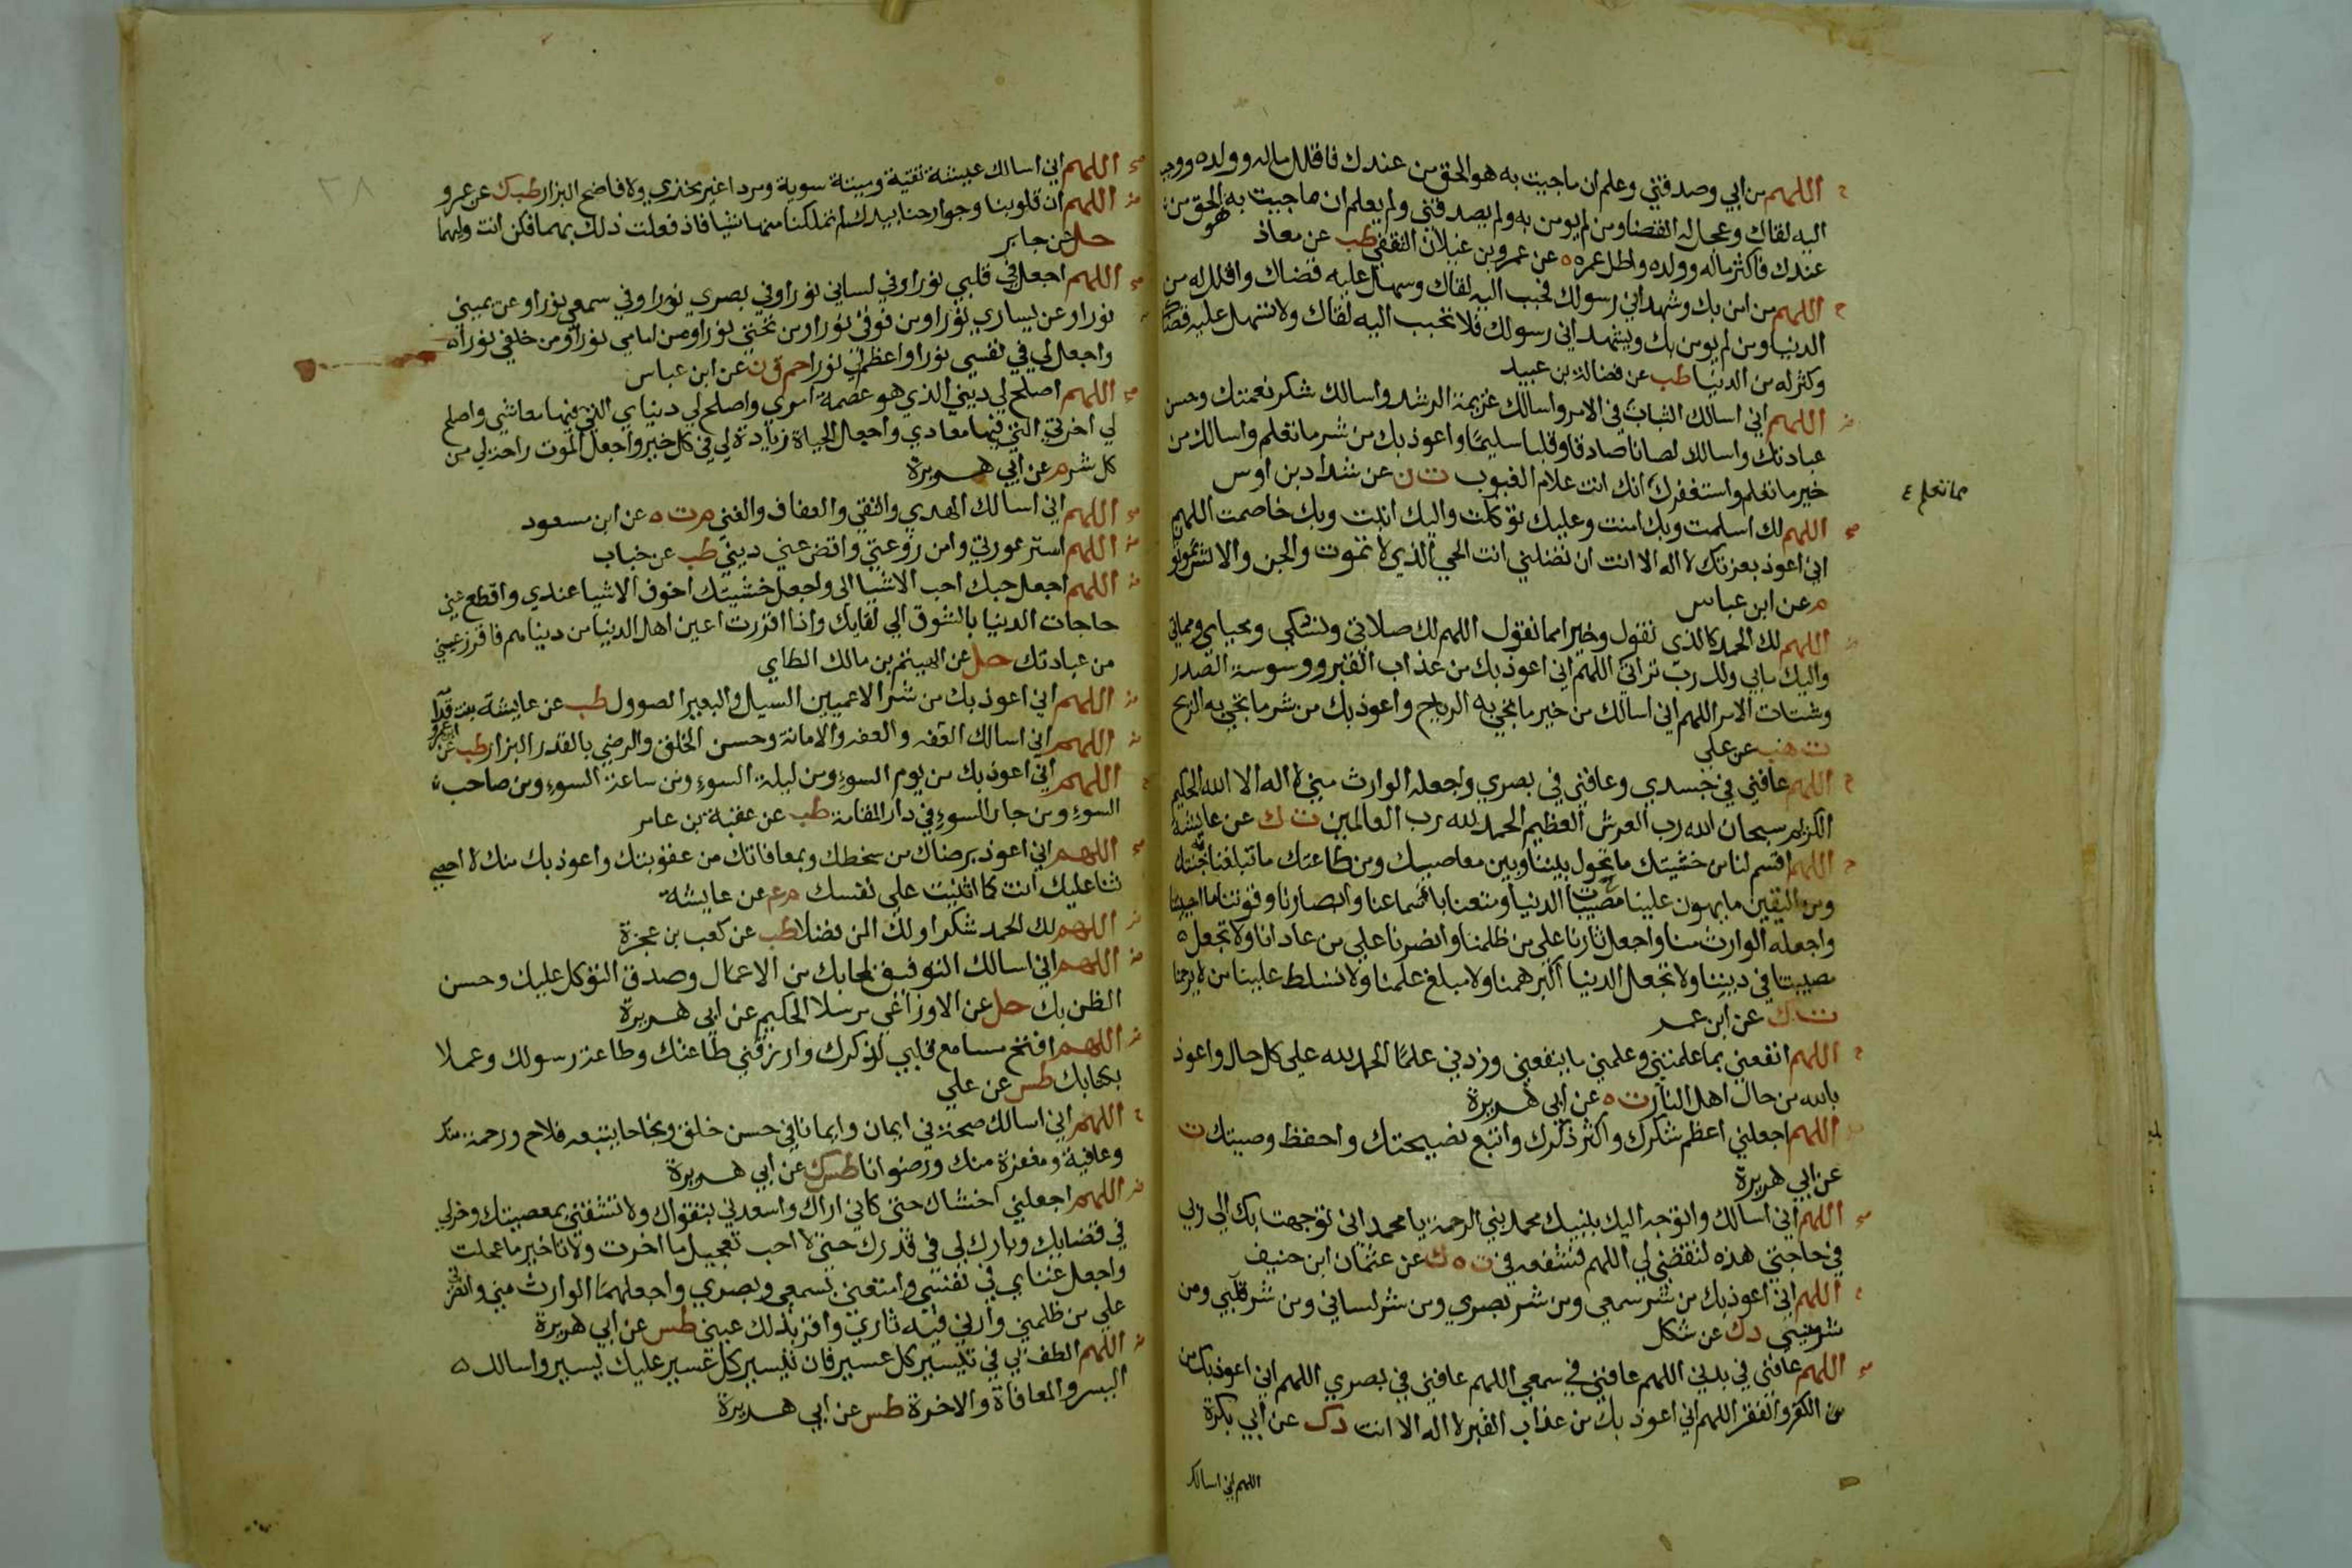 اللهم من امن بي وصدقني وعلم ان ما جيت به هو الحق من عندك فاقلل ماله وولده
اليه لقاك وعجل له القضا ومن لم يومن بي ولم يصدقني ولم يعلم ان ما جيت به الحق من
عندك فاكثر ماله وولده واطل عمره ه عن عمرو بن غيلان الثقفي طب عن معاذ
اللهم من امن بك وشهد اني رسولك فحبب اليه لقاك وسهل عليه قضاك واقلل له من
الدنيا ومن لم يومن بك ويشهد اني رسولك فلا تحبب اليه لقاك ولا تسهل عليه قضاك
وكثر له من الدنيا طب عن فضالة بن عبيد
اللهم اني اسالك الثبات في الامر واسالك عزيمة الرشد واسالك شكر نعمتك وحسن
عبادتك واسالك لسانا صادقا وقلبا سليما واعوذ بك من شر ما تعلم واسالك من
خير ما تعلم واستغفرك انك انت علام الغيوب ت ن عن شداد بن اوس
مما تعلم
اللهم لك اسلمت وبك امنت وعليك توكلت واليك انبت وبك خاصمت اللهم
اني اعوذ بعزتك لا اله الا انت ان تضلني انت الحي الذي لا تموت والجن والانس يموتو
م عن ابن عباس
اللهم لك الحمد كالذي نقول وخيرا مما نقول اللهم لك صلاتي ونسكي ومحياي ومماتي
واليك مابي ولك رب تراثي اللهم اني اعوذ بك من عذاب القبر ووسوسة الصدر
وشتات الامر اللهم اني اسالك من خير ما تجي به الرياح واعوذ بك من شر ما تجي به الريح
ت هب عن علي
اللهم عافني في جسدي وعافني في بصري واجعله الوارث مني لا اله الا الله الحكيم
الكريم سبحان الله رب العرش العظيم الحمد لله رب العالمين ت ك عن عايشة
اللهم اقسم لنا من خشيتك ما تحول بيننا وبين معاصيك ومن طاعتك ما تبلغنا به جنتك
ومن اليقين ما يهون علينا مصيبات الدنيا ومتعنا باسماعنا وابصارنا وقوتنا ما احييتنا
واجعله الوارث منا واجعل ثارنا علي من ظلمنا وانصرنا علي من عادانا ولا تجعل ه
مصيبتنا في ديننا ولا تجعل الدنيا اكبر همنا ولا مبلغ علمنا ولا تسلط علينا من لا يرحمنا
ت ك عن ابن عمر
اللهم انفعني بما علمتني وعلمني ما ينفعني وزدني علما الحمد لله علي كل حال واعوذ
بالله من حال اهل النار ت ه عن ابي هريرة
اللهم اجعلني اعظم شكرك واكثر ذكرك واتبع نصيحتك واحفظ وصيتك ت
عن ابي هريرة
اللهم اني اسالك واتوجه اليك بنبيك محمد نبي الرحمة يا محمد اني توجهت بك الي ربي
في حاجتي هذه لتقضي لي اللهم فشفعه في ت ه ك عن عثمان ابن حنيف
اللهم اني اعوذ بك من شر سمعي ومن شر بصري ومن شر لساني ومن شر قلبي ومن
شر منيي د ك عن شكل
اللهم عافني في بدني اللهم عافني في سمعي اللهم عافني في بصري اللهم اني اعوذ بك من
من الكفر والفقر اللهم اني اعوذ بك من عذاب القبر لا اله الا انت د ك عن ابي بكرة
اللهم اني اسالك
٢٨
اللهم اني اسالك عيشة نقية وميتة سوية ومردا غير مخزي ولا فاضح البزار طب ك عن عمرو
اللهم ان قلوبنا وجوارحنا بيدك لم تملكنا منها شيا فاذ فعلت ذلك بهما فكن انت وليهما
حل عن جابر
اللهم اجعل في قلبي نورا وفي لساني نورا وفي بصري نورا وفي سمعي نورا وعن يميني
نورا وعن يساري نورا ومن فوقي نورا ومن تحتي نورا ومن امامي نورا ومن خلفي نورا ه
واجعل لي في نفسي نورا واعظم لي نورا حم ق ن عن ابن عباس
اللهم اصلح لي ديني الذي هو عصمة امري واصلح لي دنياي التي فيها معاشي واصلح
لي اخرتي التي فيها معادي واجعل الحياة زيادة لي في كل خير واجعل الموت راحة لي من
كل شر م عن ابي هريرة
اللهم اني اسالك الهدي والتقي والعفاف والغني م ت ه عن ابن مسعود
اللهم استر عورتي وامن روعتي واقض عني ديني طب عن خباب
اللهم اجعل حبك احب الاشيا الي واجعل خشيتك اخوف الاشيا عندي واقطع عني
حاجات الدنيا بالشوق الي لقايك واذا اقررت اعين اهل الدنيا من دنياهم فاقرر عيني
من عبادتك حل عن الهيثم بن مالك الطاي
اللهم اني اعوذ بك من شر الاعميين السيل والبعير الصوول طب عن عايشة بنت قدا
اللهم اني اسالك العفه والامانة وحسن الخلق والرضي بالقدر البزار طب عن
اللهم اني اعوذ بك من يوم السوء ومن ليلة السوء ومن ساعة السوء ومن صاحب
السوء ومن جار السوء في دار المقامة طب عن عقبة بن عامر
اللهم اني اعوذ برضاك من سخطك وبمعافاتك من عقوبتك واعوذ بك منك لا احصي
ثنا عليك انت كما اثنيت علي نفسك م عم عن عايشة
اللهم لك الحمد شكرا ولك المن فضلا طب عن كعب بن عجرة
اللهم اني اسالك التوفيق لمحابك من الاعمال وصدق التوكل عليك وحسن
الظن بك حل عن الاوزاعي مرسلا الحكيم عن ابي هريرة
اللهم افتح مسامع قلبي لذكرك وارزقني طاعتك وطاعة رسولك وعملا
بكتابك طس عن علي
اللهم اني اسالك صحة في ايمان وايمانا في حسن خلق ونجاحا يتبعه فلاح ورحمة منك
وعافية ومغفرة منك ورضوانا طس ك عن ابي هريرة
اللهم اجعلني اخشاك حتي كاني اراك واسعدني بتقواك ولا تشقني بمعصيتك وخر لي
في قضايك وبارك لي في قدرك حتي لا احب تعجيل ما اخرت ولا تاخير ما عجلت
واجعل غناي في نفسي وامتعني بسمعي وبصري واجعلهما الوارث مني وانصرني
علي من ظلمني وارني فيه ثاري واقر بذلك عيني طس عن ابي هريرة
اللهم الطف بي في تيسير كل عسير فان تيسير كل عسير عليك يسير واسالك ه
اليسر والمعافاة والاخرة طس عن ابي هريرة